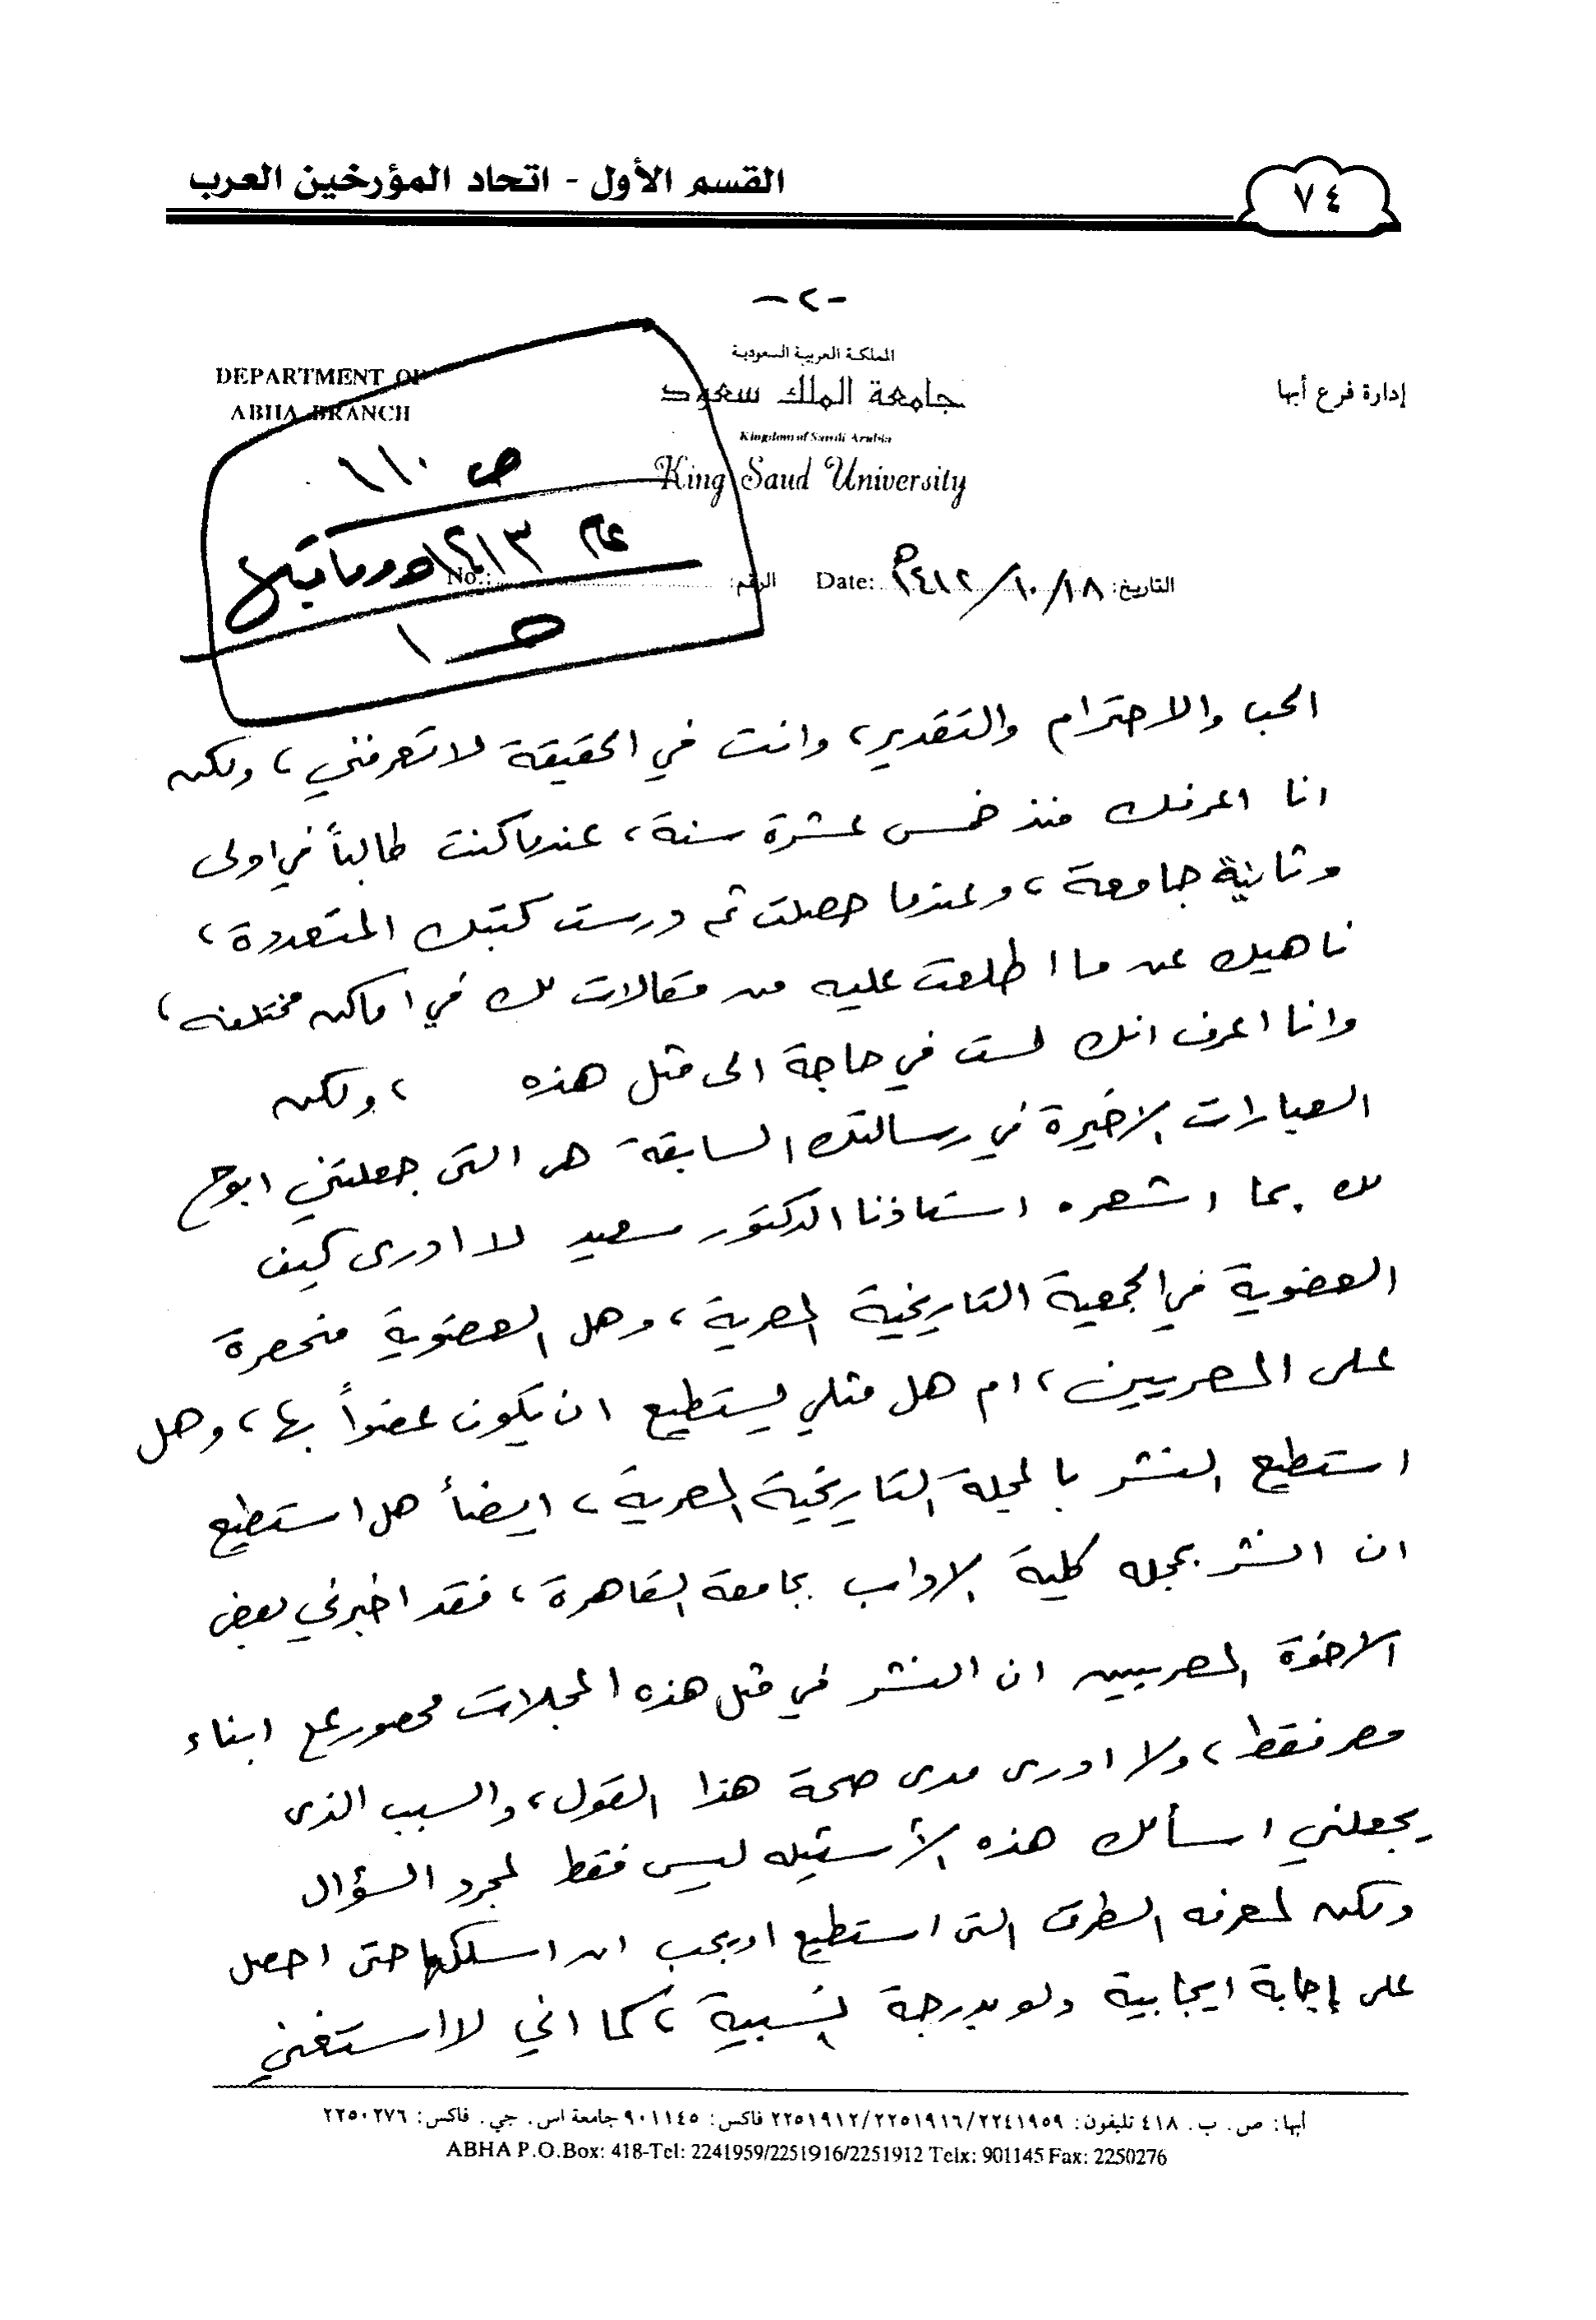 القسم الأول - اتحاد المؤرخين العرب
٧٤
-٢-
المملكة العربية السعودية
DEPARTMENT OF
إدارة فرع أبها
جامعة الملك سعود
ABHA BRANCH
Kingdom of Saudi Arabia
King Saud University
ص ١١٠
عام ١٤١٣هـ وما قبلها
التاريخ: ١٨/١٠/١٤١٢هـ Date: الرقم: No.:
ص ١
الحب والاحترام والتقدير، وانت في الحقيقة لا تعرفني، ولكن
انا اعرفك منذ خمس عشرة سنة، عندما كنت طالباً في اولى
وثانية جامعة، وعندما حصلت ثم درست كتبك المتعددة،
ناهيك عن ما اطلعت عليه من مقالات لك في اماكن مختلفه،
وانا اعرف انك لست في حاجة الى مثل هذه ، ولكن
العبارات الاخيرة في رسالتك السابقة هى التى جعلتني ابوح
لك بما اشعره استاذنا الدكتور سعيد لا ادرى كيف
العضوية في الجمعية التاريخية المصرية، وهل العضوية منحصرة
على المصريين، ام هل مثلي يستطيع ان يكون عضواً بها، وهل
استطيع النشر بالمجلة التاريخية المصرية، ايضاً هل استطيع
ان انشر بمجله كلية الاداب بجامعة القاهرة، فقد اخبرني بعض
الاخوة المصريين ان النشر في مثل هذه المجلات محصور على ابناء
مصر فقط، ولا ادرى مدى صحة هذا القول، والسبب الذى
يجعلني اسألك هذه الأسئيله ليس فقط لمجرد السؤال
ولكن لمعرفه الطرق التى استطيع او يجب ان اسلكها حتى احصل
على إجابة ايجابية ولو بدرجة نسبية، كما اني لا استغني
أبها: ص. ب. ٤١٨ تليفون: ٢٢٤١٩٥٩/٢٢٥١٩١٦/٢٢٥١٩١٢ فاكس: ٩٠١١٤٥ جامعة اس. جي. فاكس: ٢٢٥٠٢٧٦
ABHA P.O.Box: 418-Tel: 2241959/2251916/2251912 Telx: 901145 Fax: 2250276